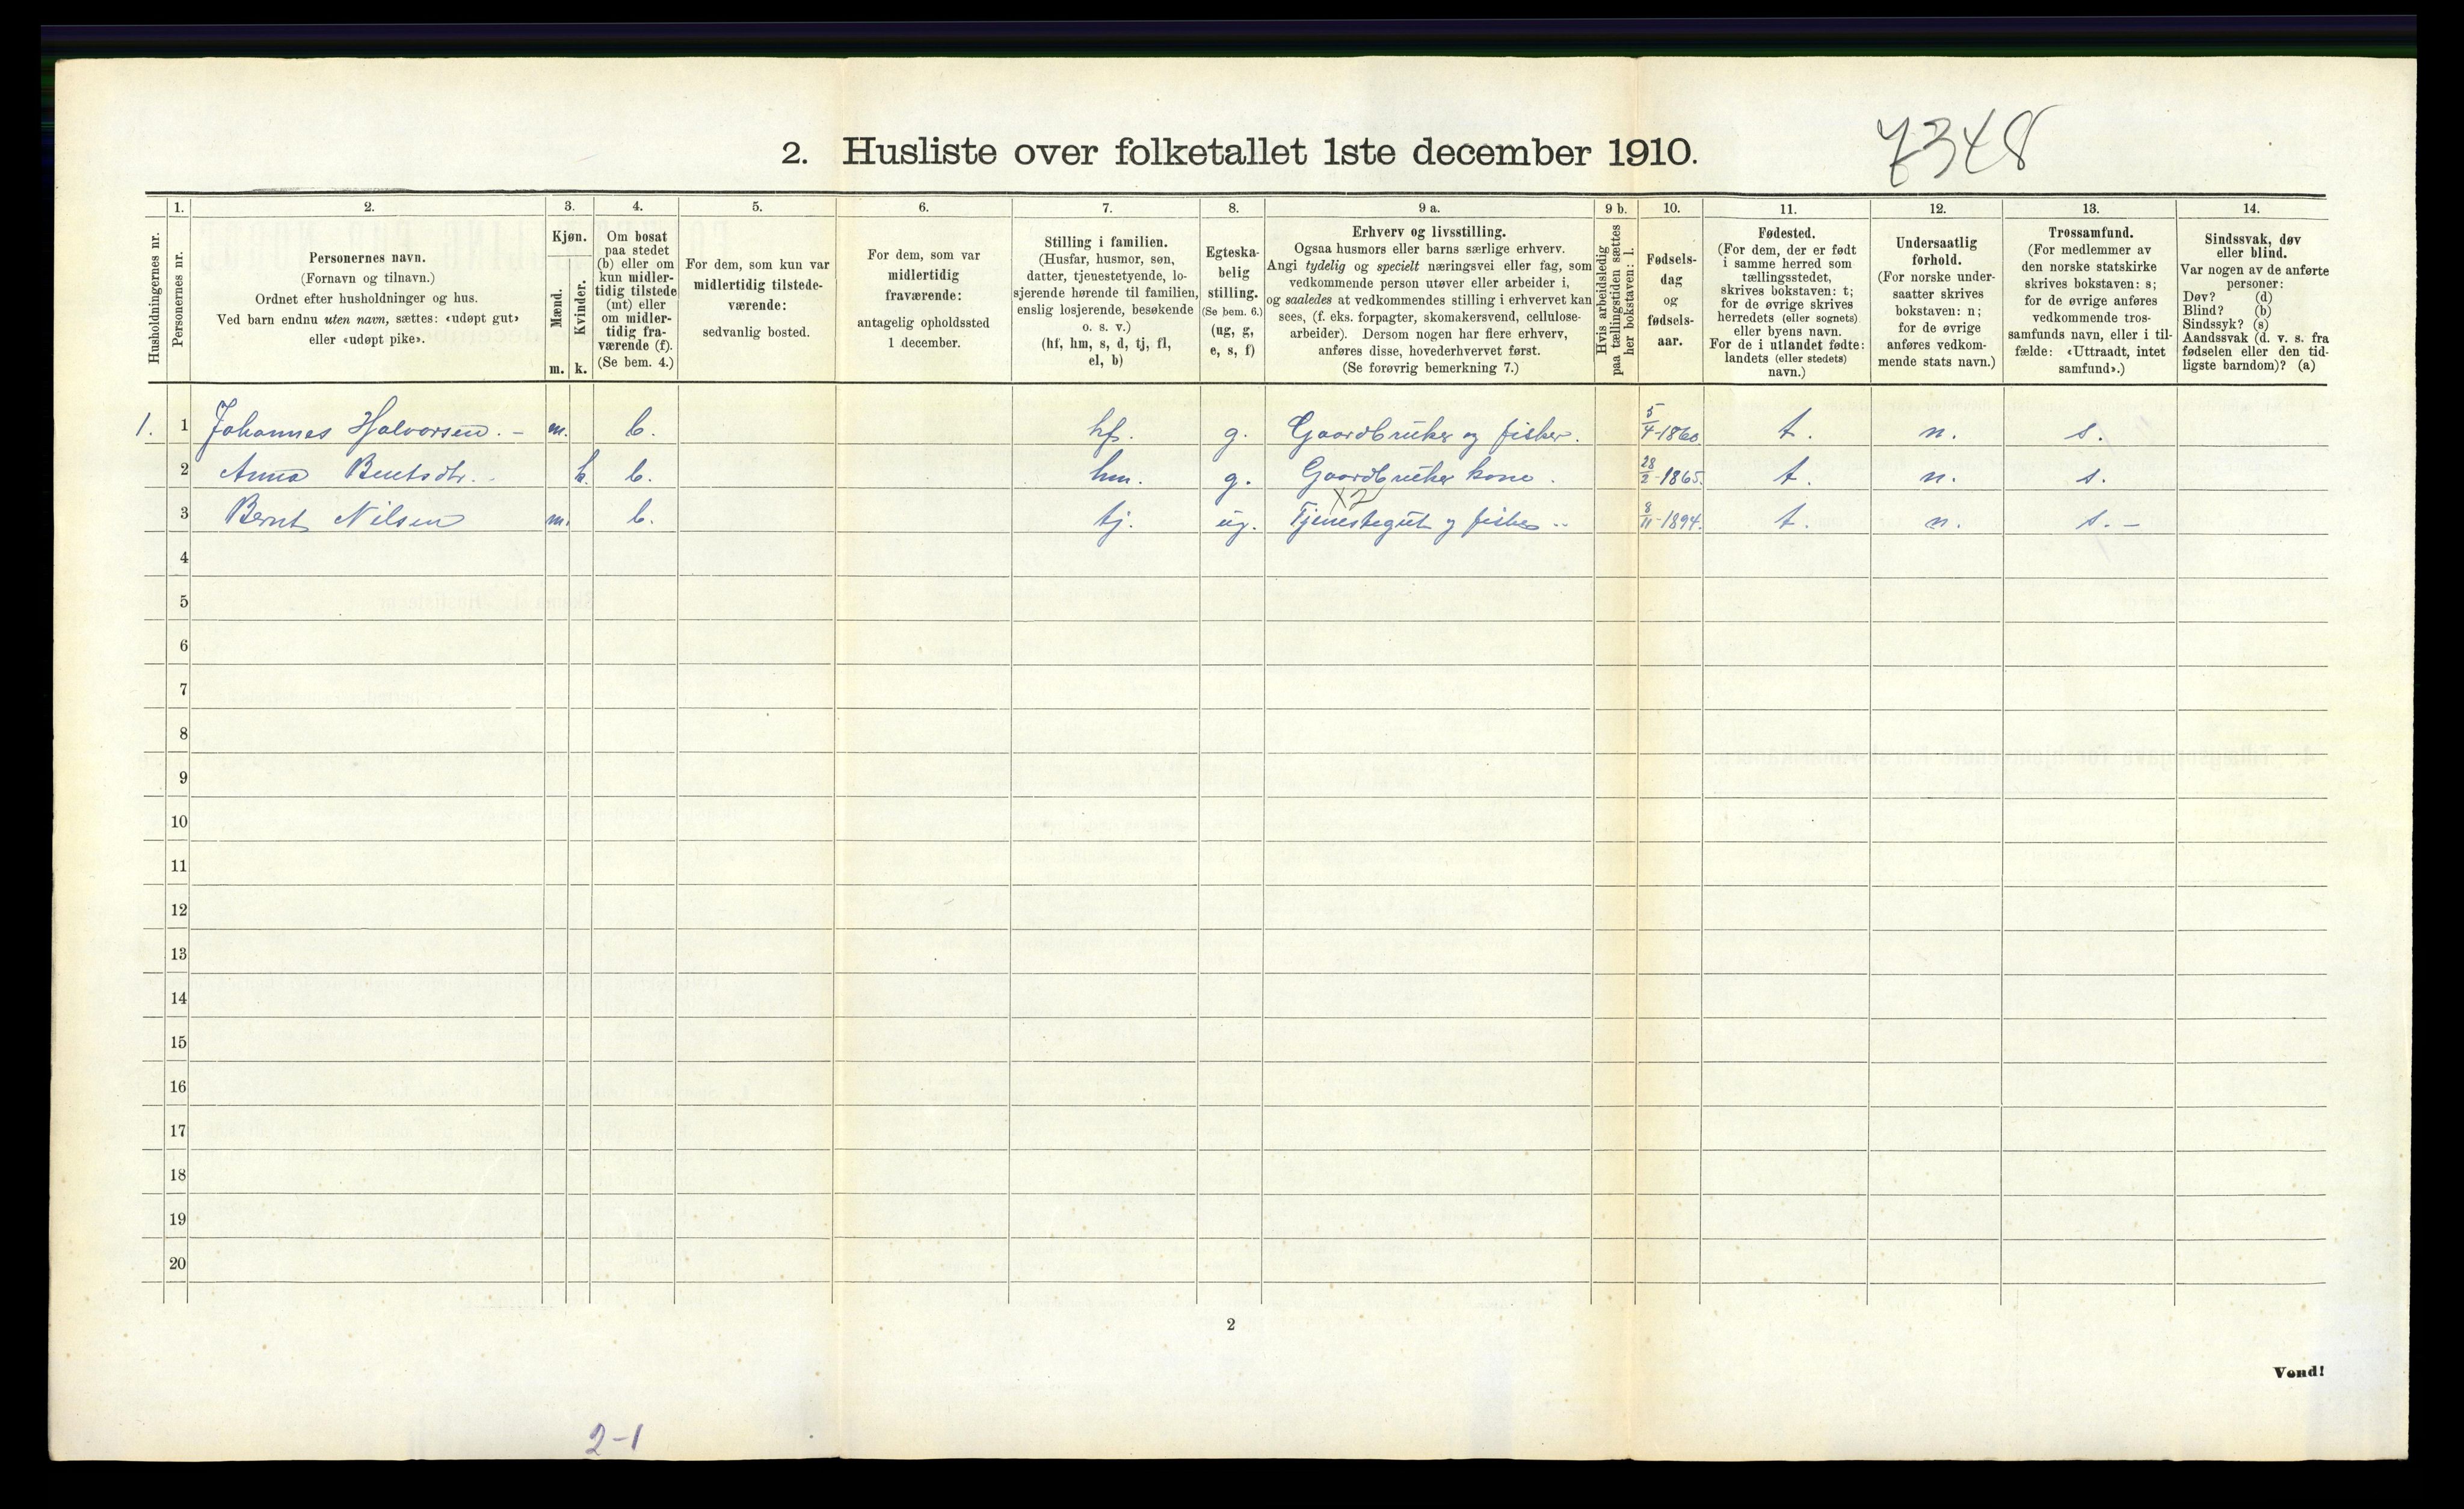 7348
2. Husliste over folketallet 1ste december 1910.
Husholdningernes nr.
1.
Personernes nr.
2.
Personernes navn.
(Fornavn og tilnavn.)
Ordnet efter husholdninger og hus.
Ved barn endnu uten navn, sættes: «udøpt gut»
eller «udøpt pike».
3.
Kjøn.
Mænd.
Kvinder.
m. k.
4.
Om bosat
paa stedet
(b) eller om
kun midler-
tidig tilstede
(mt) eller
om midler-
tidig fra-
værende (f).
(Se bem. 4.)
5.
For dem, som kun var
midlertidig tilstede-
værende:
sedvanlig bosted.
6.
For dem, som var
midlertidig
fraværende:
antagelig opholdssted
1 december.
7.
Stilling i familien.
(Husfar, husmor, søn,
datter, tjenestetyende, lo-
sjerende hørende til familien,
enslig losjerende, besøkende
o. s. v.)
(hf, hm, s, d, tj, fl,
el, b)
8.
Egteska-
belig
stilling.
(Se bem. 6.)
(ug, g,
e, s, f)
9 a.
Erhverv og livsstilling.
Ogsaa husmors eller barns særlige erhverv.
Angi tydelig og specielt næringsvei eller fag, som
vedkommende person utøver eller arbeider i,
og saaledes at vedkommendes stilling i erhvervet kan
sees, (f. eks. forpagter, skomakersvend, cellulose-
arbeider). Dersom nogen har flere erhverv,
anføres disse, hovederhvervet først.
(Se forøvrig bemerkning 7.)
9 b.
Hvis arbeidsledig
paa tællingstiden sættes
her bokstaven: l.
10.
Fødsels-
dag
og
fødsels-
aar.
11.
Fødested.
(For dem, der er født
i samme herred som
tællingsstedet,
skrives bokstaven: t;
for de øvrige skrives
herredets (eller sognets)
eller byens navn.
For de i utlandet fødte:
landets (eller stedets)
navn.)
12.
Undersaatlig
forhold.
(For norske under-
saatter skrives
bokstaven: n;
for de øvrige
anføres vedkom-
mende stats navn.)
13.
Trossamfund.
(For medlemmer av
den norske statskirke
skrives bokstaven: s;
for de øvrige anføres
vedkommende tros-
samfunds navn, eller i til-
fælde: «Uttraadt, intet
samfund».)
14.
Sindssvak, døv
eller blind.
Var nogen av de anførte
personer:
Døv? (d)
Blind? (b)
Sindssyk? (s)
Aandssvak (d. v. s. fra
fødselen eller den tid-
ligste barndom)? (a)
1. 1 Johannes Halvorsen. - m. b. hf. g. Gaardbruker og fisker. 5/4-1860. t. n. s.
2 Anna Bentsdtr. - k. b. hm. g. Gaardbruker kone. 28/2-1865. t. n. s.
X2
3 Bernt Nilsen m. b. tj. ug. Tjenestegut og fisker.. 8/11-1894. t. n. s. -
4
5
6
7
8
9
10
11
12
13
14
15
16
17
18
19
20
2
Vend!
2-1